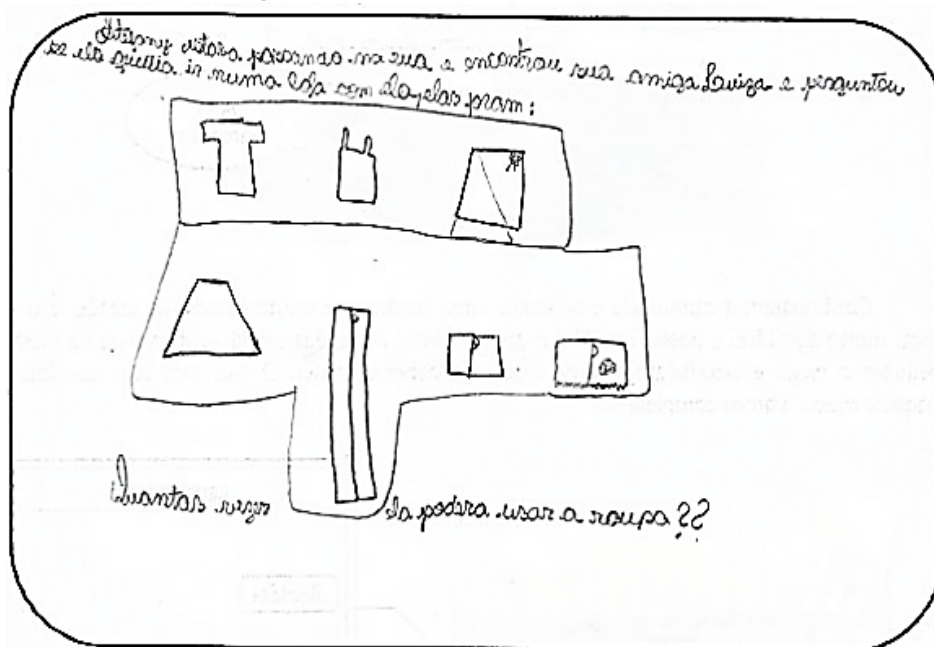 estava passando na rua e encontrou sua amiga Luiza e perguntou
se ela queria ir numa loja com ela, elas foram:
Quantas vezes ela podera usar a roupa ??